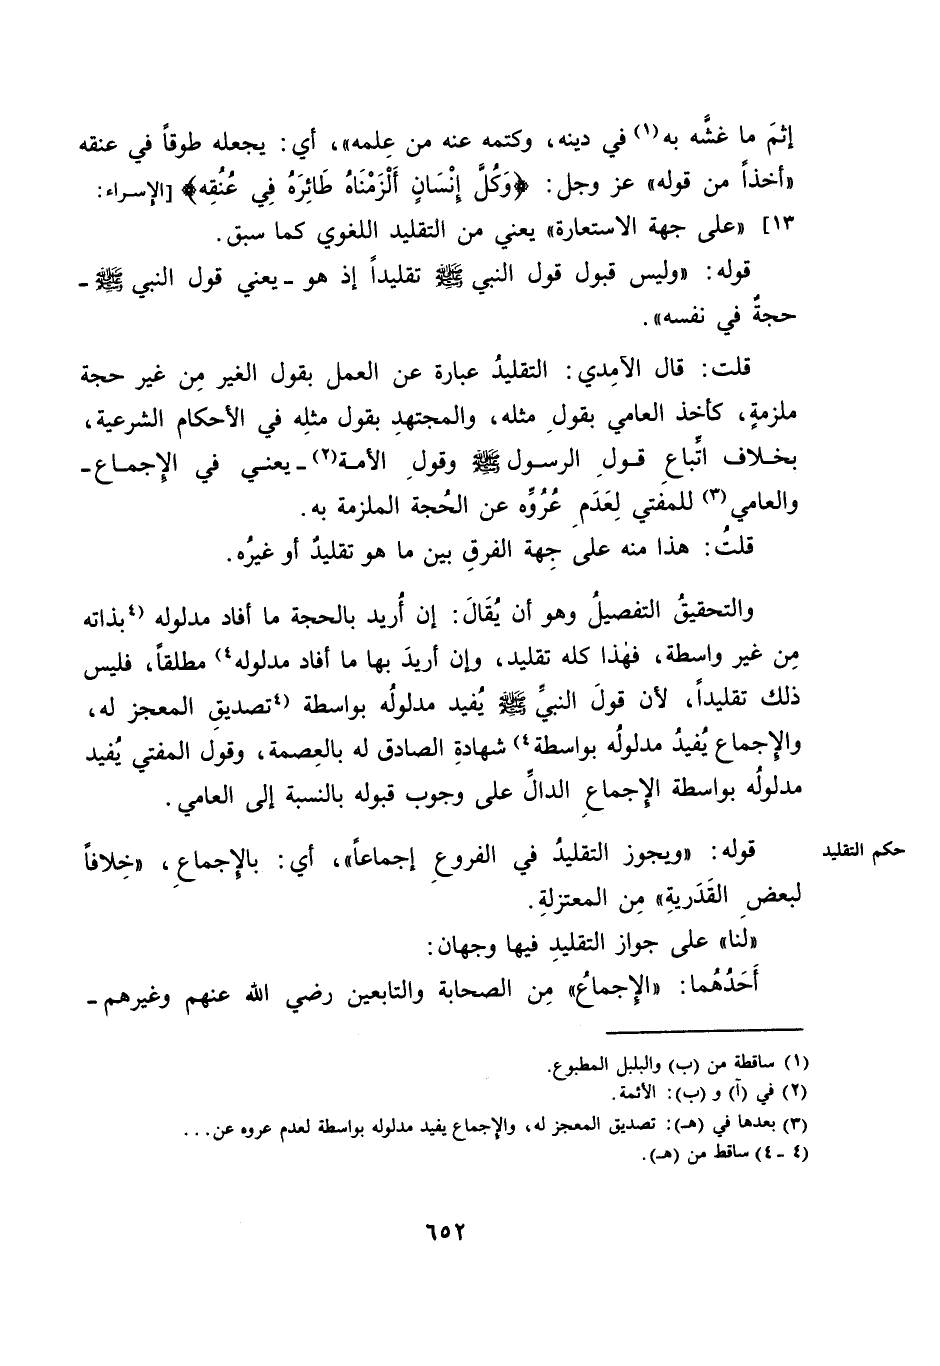 إثمَ ما غشَّه به(١) في دينه، وكتمه عنه من عِلمه»، أي: يجعله طوقاً في عنقه
«أخذاً من قوله» عز وجل: ﴿وَكُلَّ إِنْسَانٍ أَلْزَمْنَاهُ طَائِرَهُ فِي عُنُقِه﴾ [الإسراء:
١٣] «على جهة الاستعارة» يعني من التقليد اللغوي كما سبق.
قوله: «وليس قبول قول النبي ﷺ تقليداً إذ هو ـ يعني قول النبي ﷺ ـ
حجةٌ في نفسه».
قلت: قال الآمِدي: التقليدُ عبارة عن العمل بقول الغير مِن غير حجة
ملزمةٍ، كأخذ العامي بقولِ مثله، والمجتهدِ بقول مثلِه في الأحكام الشرعية،
بخلاف اتَّباعِ قولِ الرسول ﷺ وقولِ الأمة(٢) ـ يعني في الإجماع ـ
والعامي(٣) للمفتي لِعَدَمِ عُرُوِّه عن الحُجة الملزمة به.
قلتُ: هذا منه على جِهة الفرقِ بين ما هو تقليدٌ أو غيرُه.
والتحقيقُ التفصيلُ وهو أن يُقَالَ: إن أُريد بالحجة ما أفاد مدلوله (٤بذاته
مِن غير واسطة، فهٰذا كله تقليد، وإن أريدَ بها ما أفاد مدلوله٤) مطلقاً، فليس
ذلك تقليداً، لأن قولَ النبيِّ ﷺ يُفيد مدلولُه بواسطة (٤تصديقِ المعجز له،
والإجماع يُفيدُ مدلولُه بواسطة٤) شهادةِ الصادق له بالعِصمة، وقول المفتي يُفيد
مدلولُه بواسطة الإجماعِ الدالِّ على وجوب قبوله بالنسبة إلى العامي.
حكم التقليد
قوله: «ويجوز التقليدُ في الفروعِ إجماعاً»، أي: بالإجماعِ، «خِلافاً
لبعضِ القَدَريةِ» مِن المعتزلةِ.
«لنا» على جواز التقليدِ فيها وجهان:
أَحَدُهُما: «الإجماعُ» مِن الصحابة والتابعين رضي الله عنهم وغيرهم ـ
(١) ساقطة من (ب) والبلبل المطبوع.
(٢) في (آ) و (ب): الأئمة.
(٣) بعدها في (هـ): تصديق المعجز له، والإجماع يفيد مدلوله بواسطة لعدم عروه عن...
(٤ - ٤) ساقط من (هـ).
٦٥٢